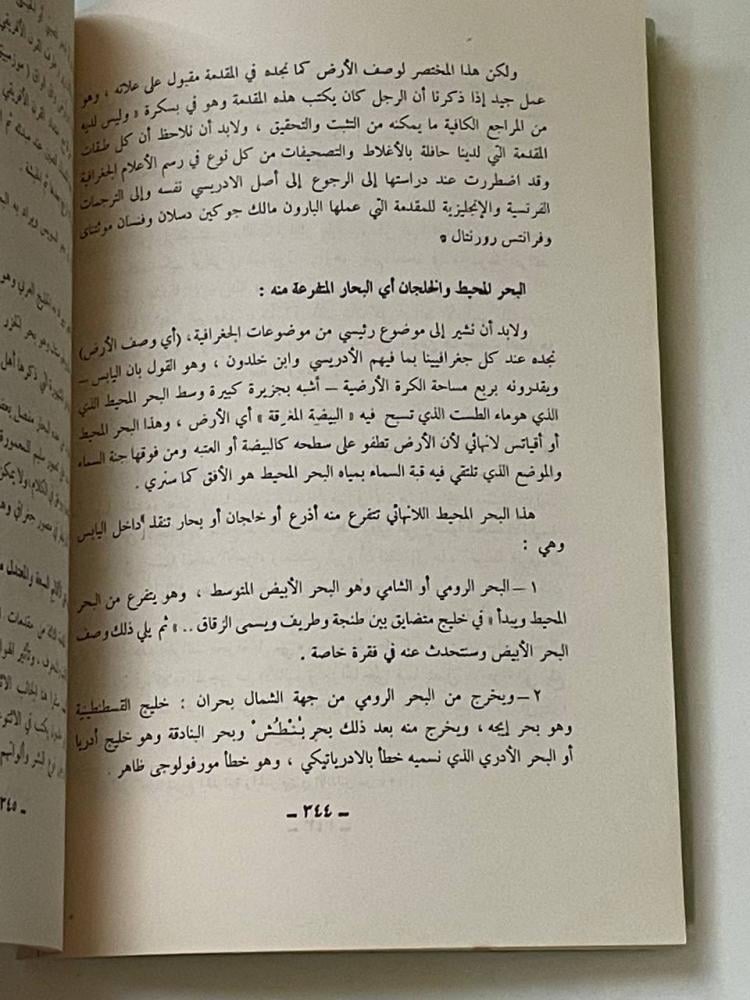 ولكن هذا المختصر لوصف الأرض كما نجده في المقدمة مقبول على علاته ، وهو
عمل جيد إذا ذكرنا أن الرجل كان يكتب هذه المقدمة وهو في بسكرة « وليس لديه
من المراجع الكافية ما يمكنه من التثبت والتحقيق ، ولابد أن نلاحظ أن كل طبقات
المقدمة التي لدينا حافلة بالأغلاط والتصحيفات من كل نوع في رسم الأعلام الجغرافية
وقد اضطررت عند دراستها إلى الرجوع إلى أصل الادريسي نفسه وإلى الترجمات
الفرنسية والإنجليزية للمقدمة التي عملها البارون مالك جوكين دسلان وفنسان مونتناى
وفرانتس رورنتال »
البحر المحيط والخلجان أي البحار المتفرعة منه :
ولابد أن نشير إلى موضوع رئيسي من موضوعات الجغرافية، (أي وصف الأرض)
نجده عند كل جغرافيينا بما فيهم الأدريسي وابن خلدون ، وهو القول بان اليابس –
ويقدرونه بربع مساحة الكرة الأرضية – أشبه بجزيرة كبيرة وسط البحر المحيط الذي
الذي هوماء الطست الذي تسبح فيه « البيضة المغرقة » أي الأرض ، وهذا البحر المحيط
أو أقيانس لانهائي لأن الأرض تطفو على سطحه كالبيضة أو العتبه ومن فوقها جنة السماء
والموضع الذي تلتقي فيه قبة السماء بمياه البحر المحيط هو الأفق كما سنري .
هذا البحر المحيط اللانهائي تتفرع منه أذرع أو خلجان أو بحار تنقذ داخل اليابس
وهي :
١ – البحر الرومي أو الشامي وهو البحر الأبيض المتوسط ، وهو يتفرع من البحر
المحيط ويبدأ « في خليج متضايق بين طنجة وطريف ويسمى الزقاق .. » ثم يلي ذلك وصف
البحر الأبيض وستحدث عنه في فقرة خاصة .
٢ – ويخرج من البحر الرومي من جهة الشمال بحران : خليج القسطنطينية
وهو بحر إيجه ، ويخرج منه بعد ذلك بحر بُنْطُش وبحر البنادقة وهو خليج أدريا
أو البحر الأدري الذي نسميه خطأ بالادرياتيكي ، وهو خطأ مورفولوجى ظاهر .
– ٣٤٤ –